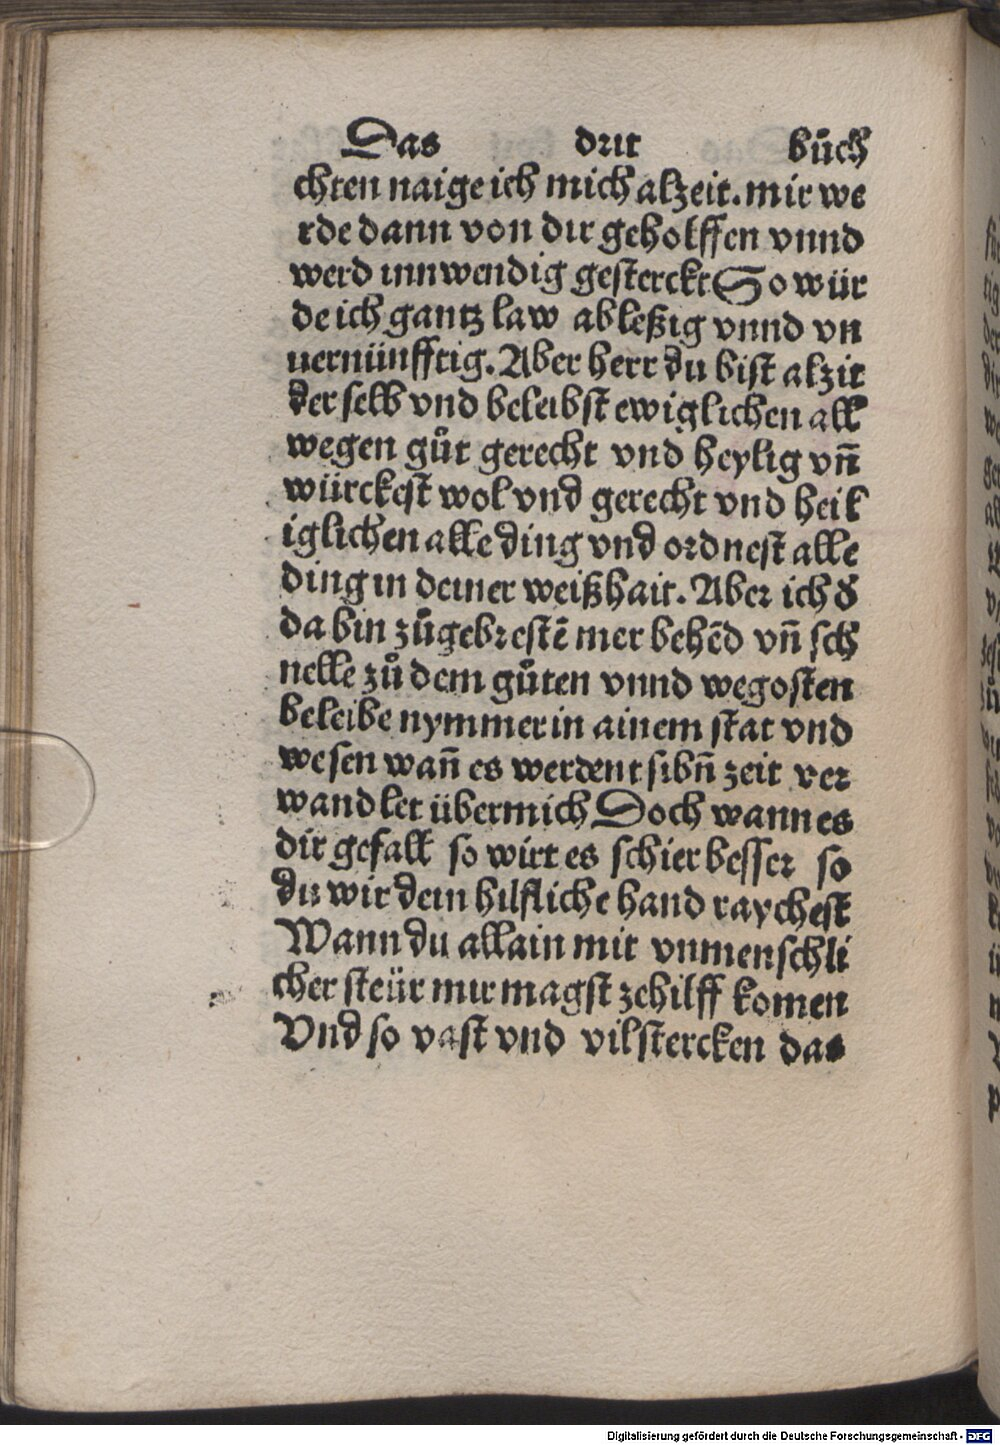 Das drit bůch
chten naige ich mich alzeit. mir we
rde dann von dir geholffen vnnd
werd innwendig gesterckt So wür
de ich gantz law ableßig vnnd vn
uernünfftig. Aber herr du bist alzit
der selb vnd beleibst ewiglichen all
wegen gůt gerecht vnd heylig vn̄
würckest wol vnd gerecht vnd heil
iglichen alle ding vnd ordnest alle
ding in deiner weißhait. Aber ich d̕
da bin zůgebrestē mer behēd vn̄ sch
nelle zů dem gůten vnnd wegosten
beleibe nymmer in ainem stat vnd
wesen wan̄ es werdent sibn̄ zeit ver
wandlet übermich Doch wann es
dir gefall so wirt es schier besser so
du wir dein hilfliche hand raychest
Wann du allain mit vnmenschli
cher steür mir magst zehilff komen
Vnd so vast vnd vilstercken das
Digitalisierung gefördert durch die Deutsche Forschungsgemeinschaft - DFG